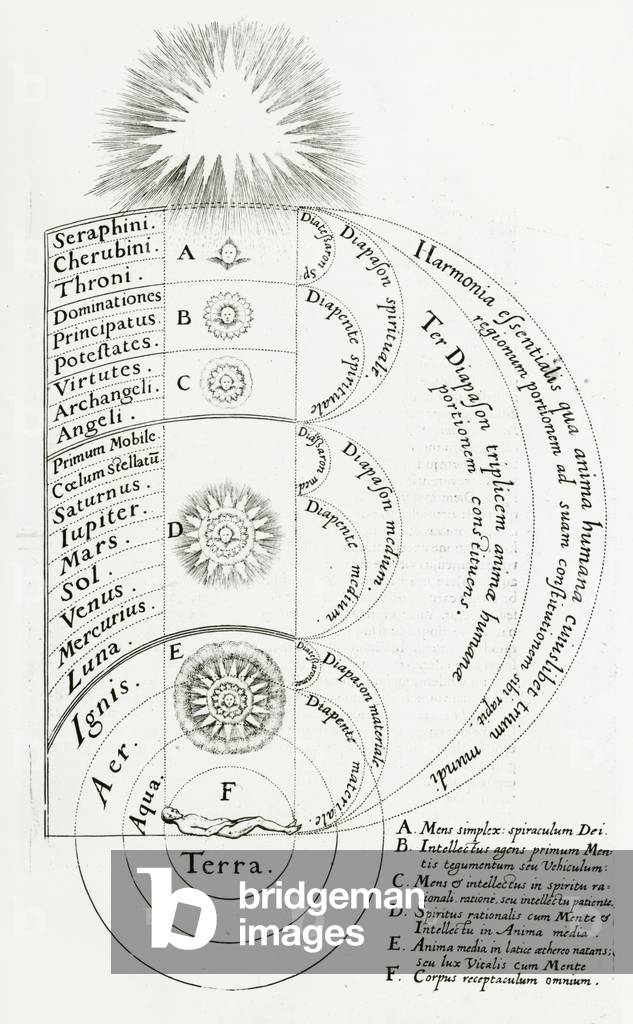 Seraphini.
Cherubini.
Throni.
Dominationes
Principatus
Potestates.
Virtutes.
Archangeli.
Angeli.
Primum Mobile
Cœlum Stellatū
Saturnus.
Iupiter.
Mars.
Sol.
Venus.
Mercurius.
Luna.
Ignis.
Aer.
Aqua.
Terra.
A
B
C
D
E
F
Diateſsaron Sp.
Diapaſon spirituale.
Diapente spirituale
med
Diapaſon medium.
Diapente medium.
Diapason materiale
Diapente materiale
Ter Diapaſon triplicem animæ humanæ
portionem constituens.
Harmonia eſsentialis qua anima humana cuiuslibet trium mundi
regionum portionem ad suam conſtitutionem sibi rapit.
A. Mens simplex: spiraculum Dei.
B. Intellectus agens primum Men-
tis tegumentum seu Vehiculum:
C. Mens & intellectus in spiritu ra-
tionali, ratione, seu intellectu patiente,
D. Spiritus rationalis cum Mente &
Intellectu in Anima media
E. Anima media in latice æthereo natans;
seu lux Vitalis cum Mente
F. Corpus receptaculum omnium.
b
bridgeman
images